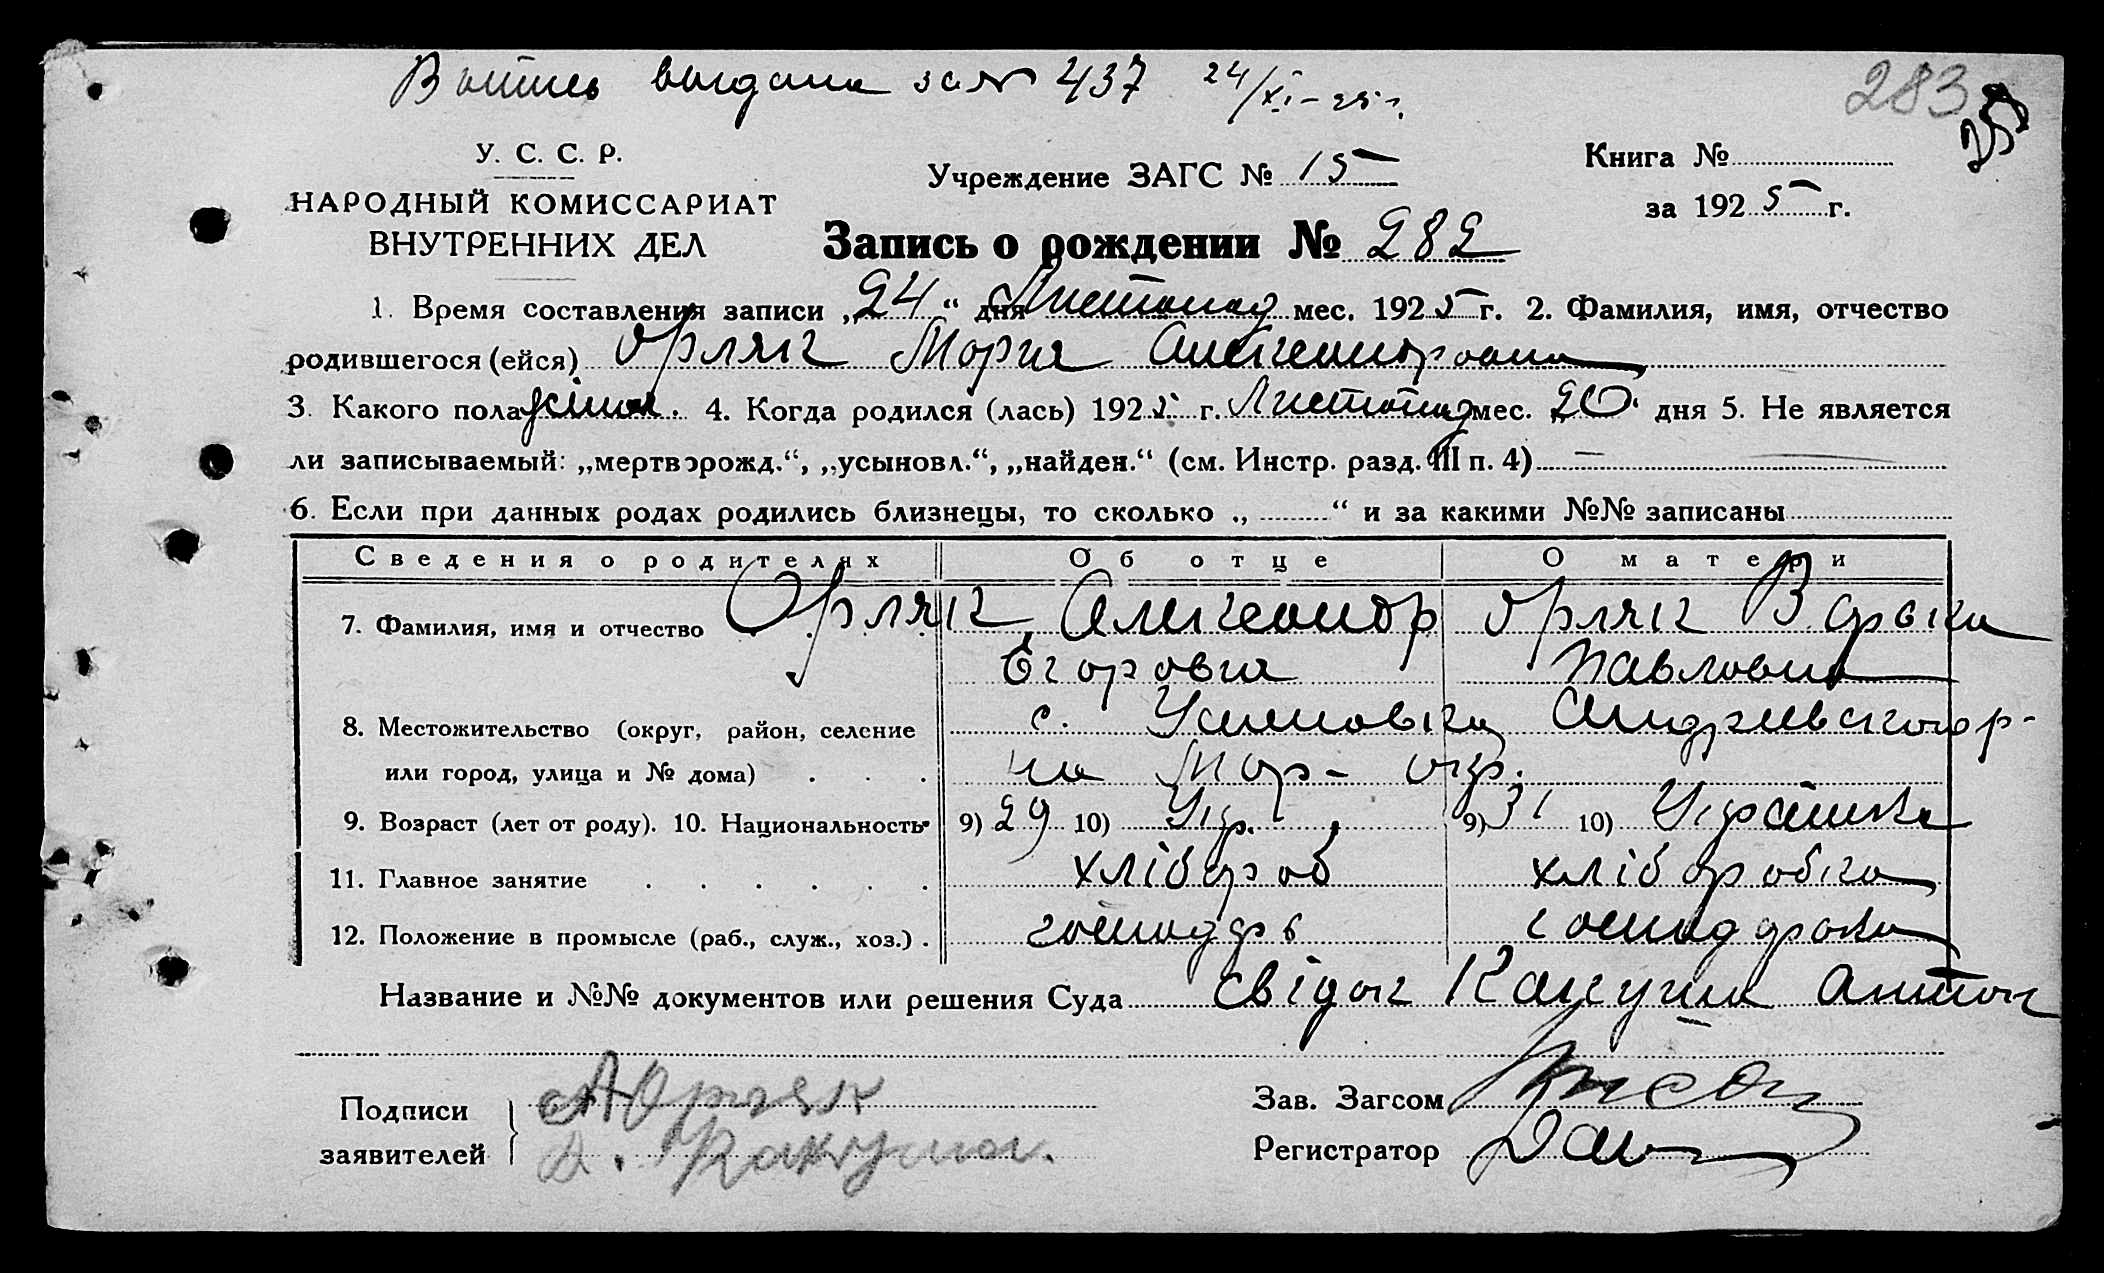 Випись видана за № 437 24/XI-25 г.
283
У. С. С. Р.
НАРОДНЫЙ КОМИССАРИАТ
ВНУТРЕННИХ ДЕЛ
Учреждение ЗАГС № 15
Книга №
за 1925 г.
Запись о рождении № 282
1. Время составления записи „24“ дня Листопад мес. 1925 г. 2. Фамилия, имя, отчество
родившегося (ейся) Орляк Мария Александровна
3. Какого пола жіноч. 4. Когда родился (лась) 1925 г. Листопад мес. 20 дня 5. Не является
ли записываемый: „мертворожд.“, „усыновл.“, „найден.“ (см. Инстр. разд. III п. 4) —
6. Если при данных родах родились близнецы, то сколько „ “ и за какими №№ записаны
Сведения о родителях Об отце О матери
7. Фамилия, имя и отчество Орляк Александр Орляк Варька
Егоровия Павловна
8. Местожительство (округ, район, селение с. Успеновка Андріевского р-
или город, улица и № дома) на Мар- окр.
9. Возраст (лет от роду). 10. Национальность 9) 29 10) Укр. 9) 31 10) Українка
11. Главное занятие хлібороб хліборобка
12. Положение в промысле (раб., служ., хоз.) господарь господарка
Название и №№ документов или решения Суда свідок Какуша Антон
Подписи
заявителей
А Орляк
Зав. Загсом
Регистратор